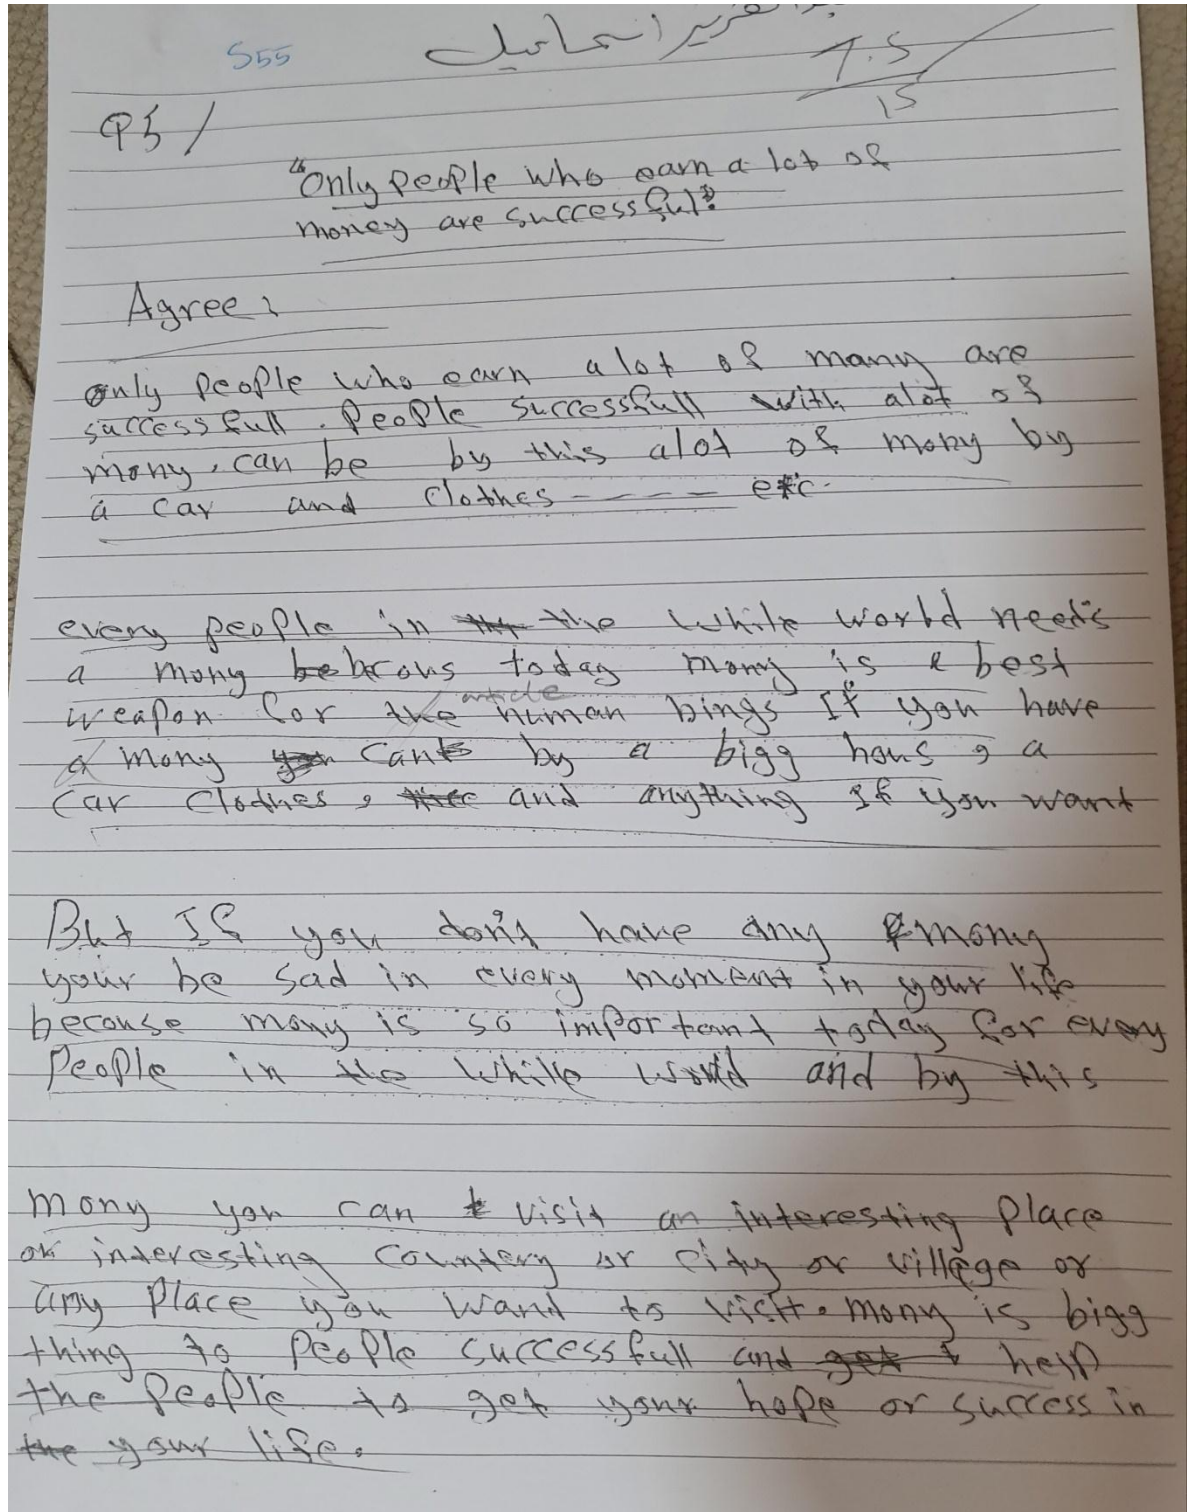 S55
اسماعيل
7.5
15
Q5 /
"Only people who earn a lot of
money are successful"
Agree:
only people who earn alot of many are
successfull. people successfull with alot of
mony, can be by this alot of mony by
a car and clothes - - - - - etc.
every people in the while world needs
a mony becaus today mony is a best
article
weapon for the human bings If you have
a mony can by a bigg hous, a
car clothes, and anything If you want
But If you don't have any mony
your be sad in every moment in your life
becouse mony is so important today for every
people in the while world and by this
mony you can visit an interesting place
or interesting countery or city or village or
any place you want to visit. mony is bigg
thing to people successfull and help
the people to get your hope or success in
your life.